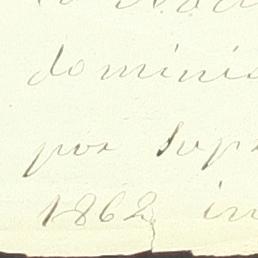 dominic
por Supr
1862 in